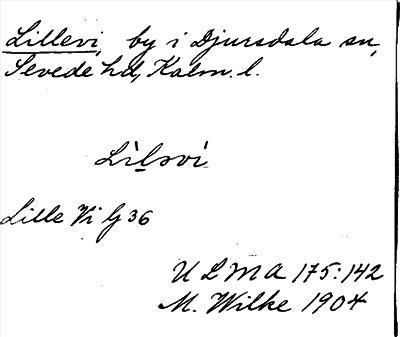 Lillevi, by i Djursdala sn,
Sevede hd, Kalm. l.
Lìlsvi
Lille Vi G 36
U L M A 175:142
M. Wilke 1904